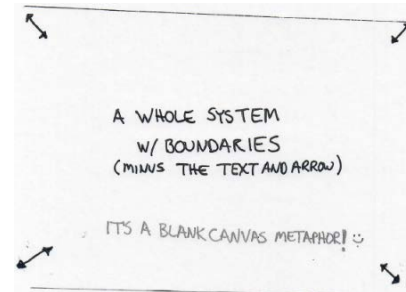 A WHOLE SYSTEM
W/ BOUNDARIES
(MINUS THE TEXT AND ARROW)
ITS A BLANK CANVAS METAPHOR! :)